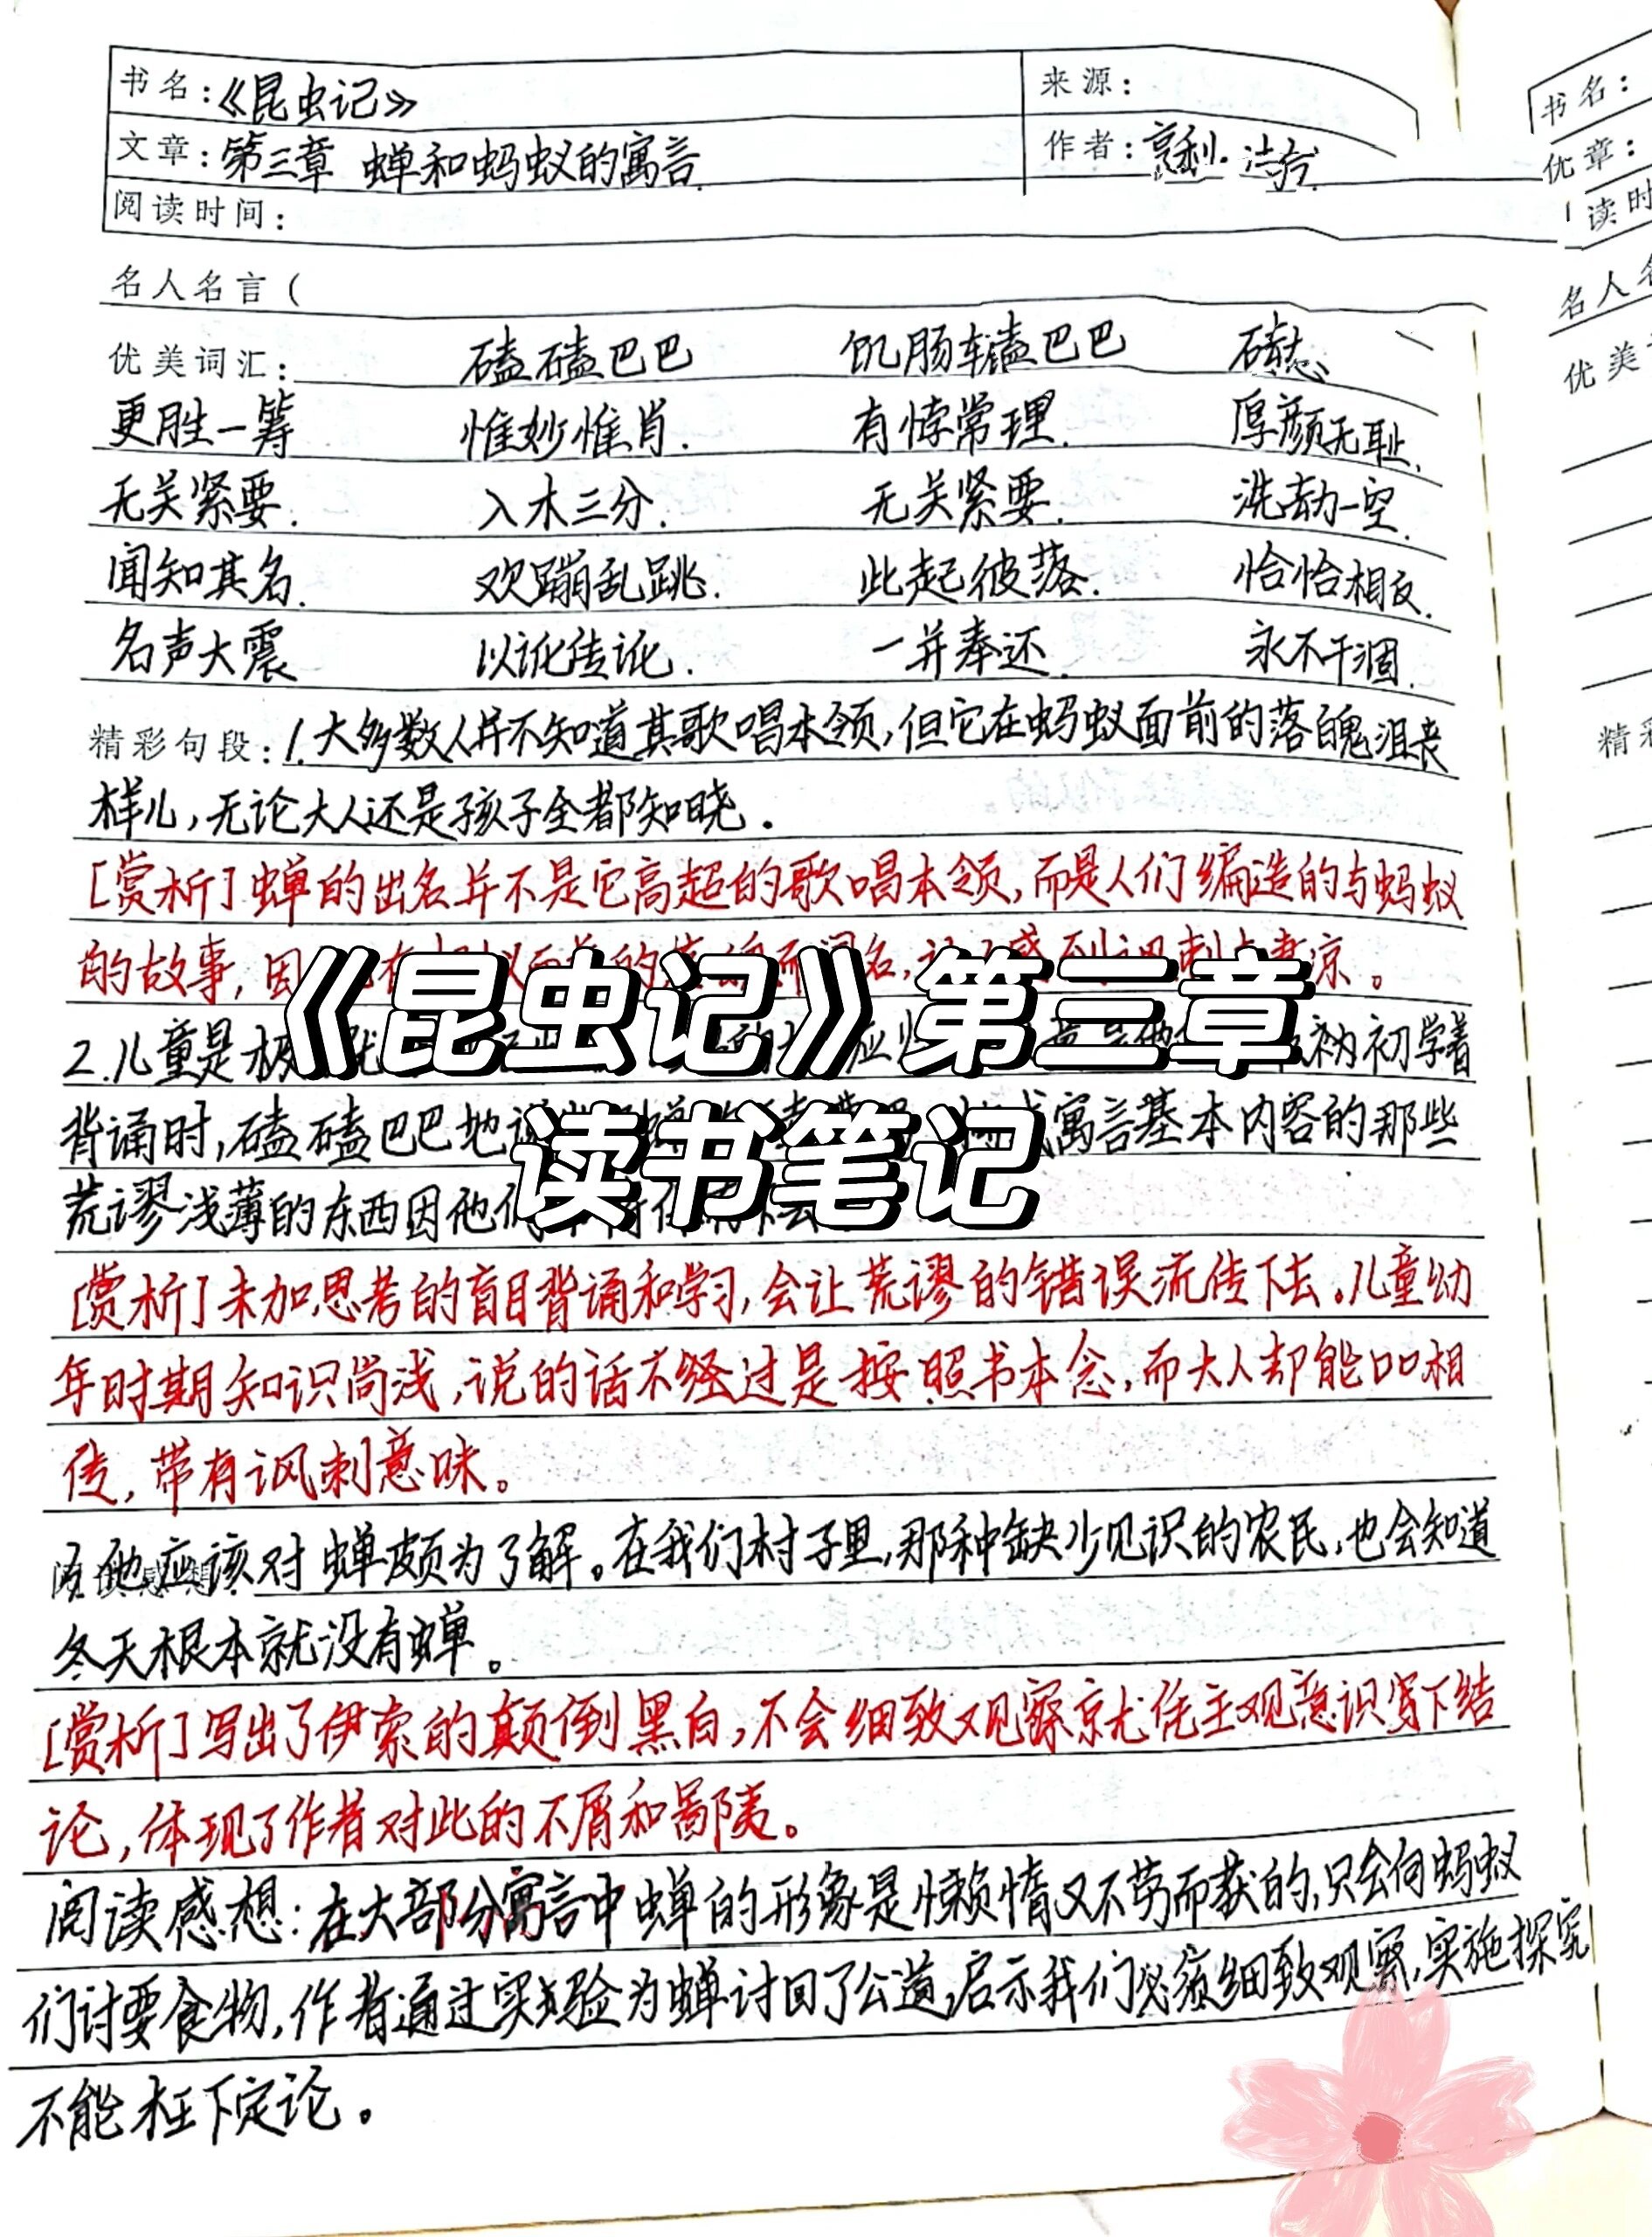 书名：《昆虫记》 来源：
文章：第三章 蝉和蚂蚁的寓言 作者：亨利·法布
阅读时间：
名人名言（
优美词汇： 磕磕巴巴 饥肠辘磕巴巴
更胜一筹 惟妙惟肖. 有悖常理. 厚颜无耻.
无关紧要. 入木三分. 无关紧要. 洗劫一空.
闻知其名. 欢蹦乱跳. 此起彼落. 恰恰相反.
名声大震 以讹传讹. 一并奉还. 永不干涸.
精彩句段：1.大多数人并不知道其歌唱本领，但它在蚂蚁面前的落魄沮丧
样儿，无论大人还是孩子全都知晓.
[赏析]蝉的出名并不是它高超的歌唱本领，而是人们编造的与蚂蚁
的故事，因 凉。
《昆虫记》第三章
2.儿童是极 初学着
背诵时，磕磕巴巴地 寓言基本内容的那些
读书笔记
荒谬浅薄的东西因他们
[赏析]未加思考的盲目背诵和学习，会让荒谬的错误流传下去。儿童幼
年时期知识尚浅，说的话不经过是按照书本念，而大人却能口口相
传，带有讽刺意味。
他应该对蝉颇为了解。在我们村子里，那种缺少见识的农民，也会知道
冬天根本就没有蝉。
[赏析]写出了伊索的颠倒黑白，不会细致观察就凭主观意识写下结
论，体现了作者对此的不屑和鄙夷。
阅读感想：在大部分寓言中蝉的形象是懒惰又不劳而获的，只会向蚂蚁
们讨要食物，作者通过实验为蝉讨回了公道，启示我们必须细致观察，实施探究
不能枉下定论。
书名：
优章：
读时
名人名
优美
精彩